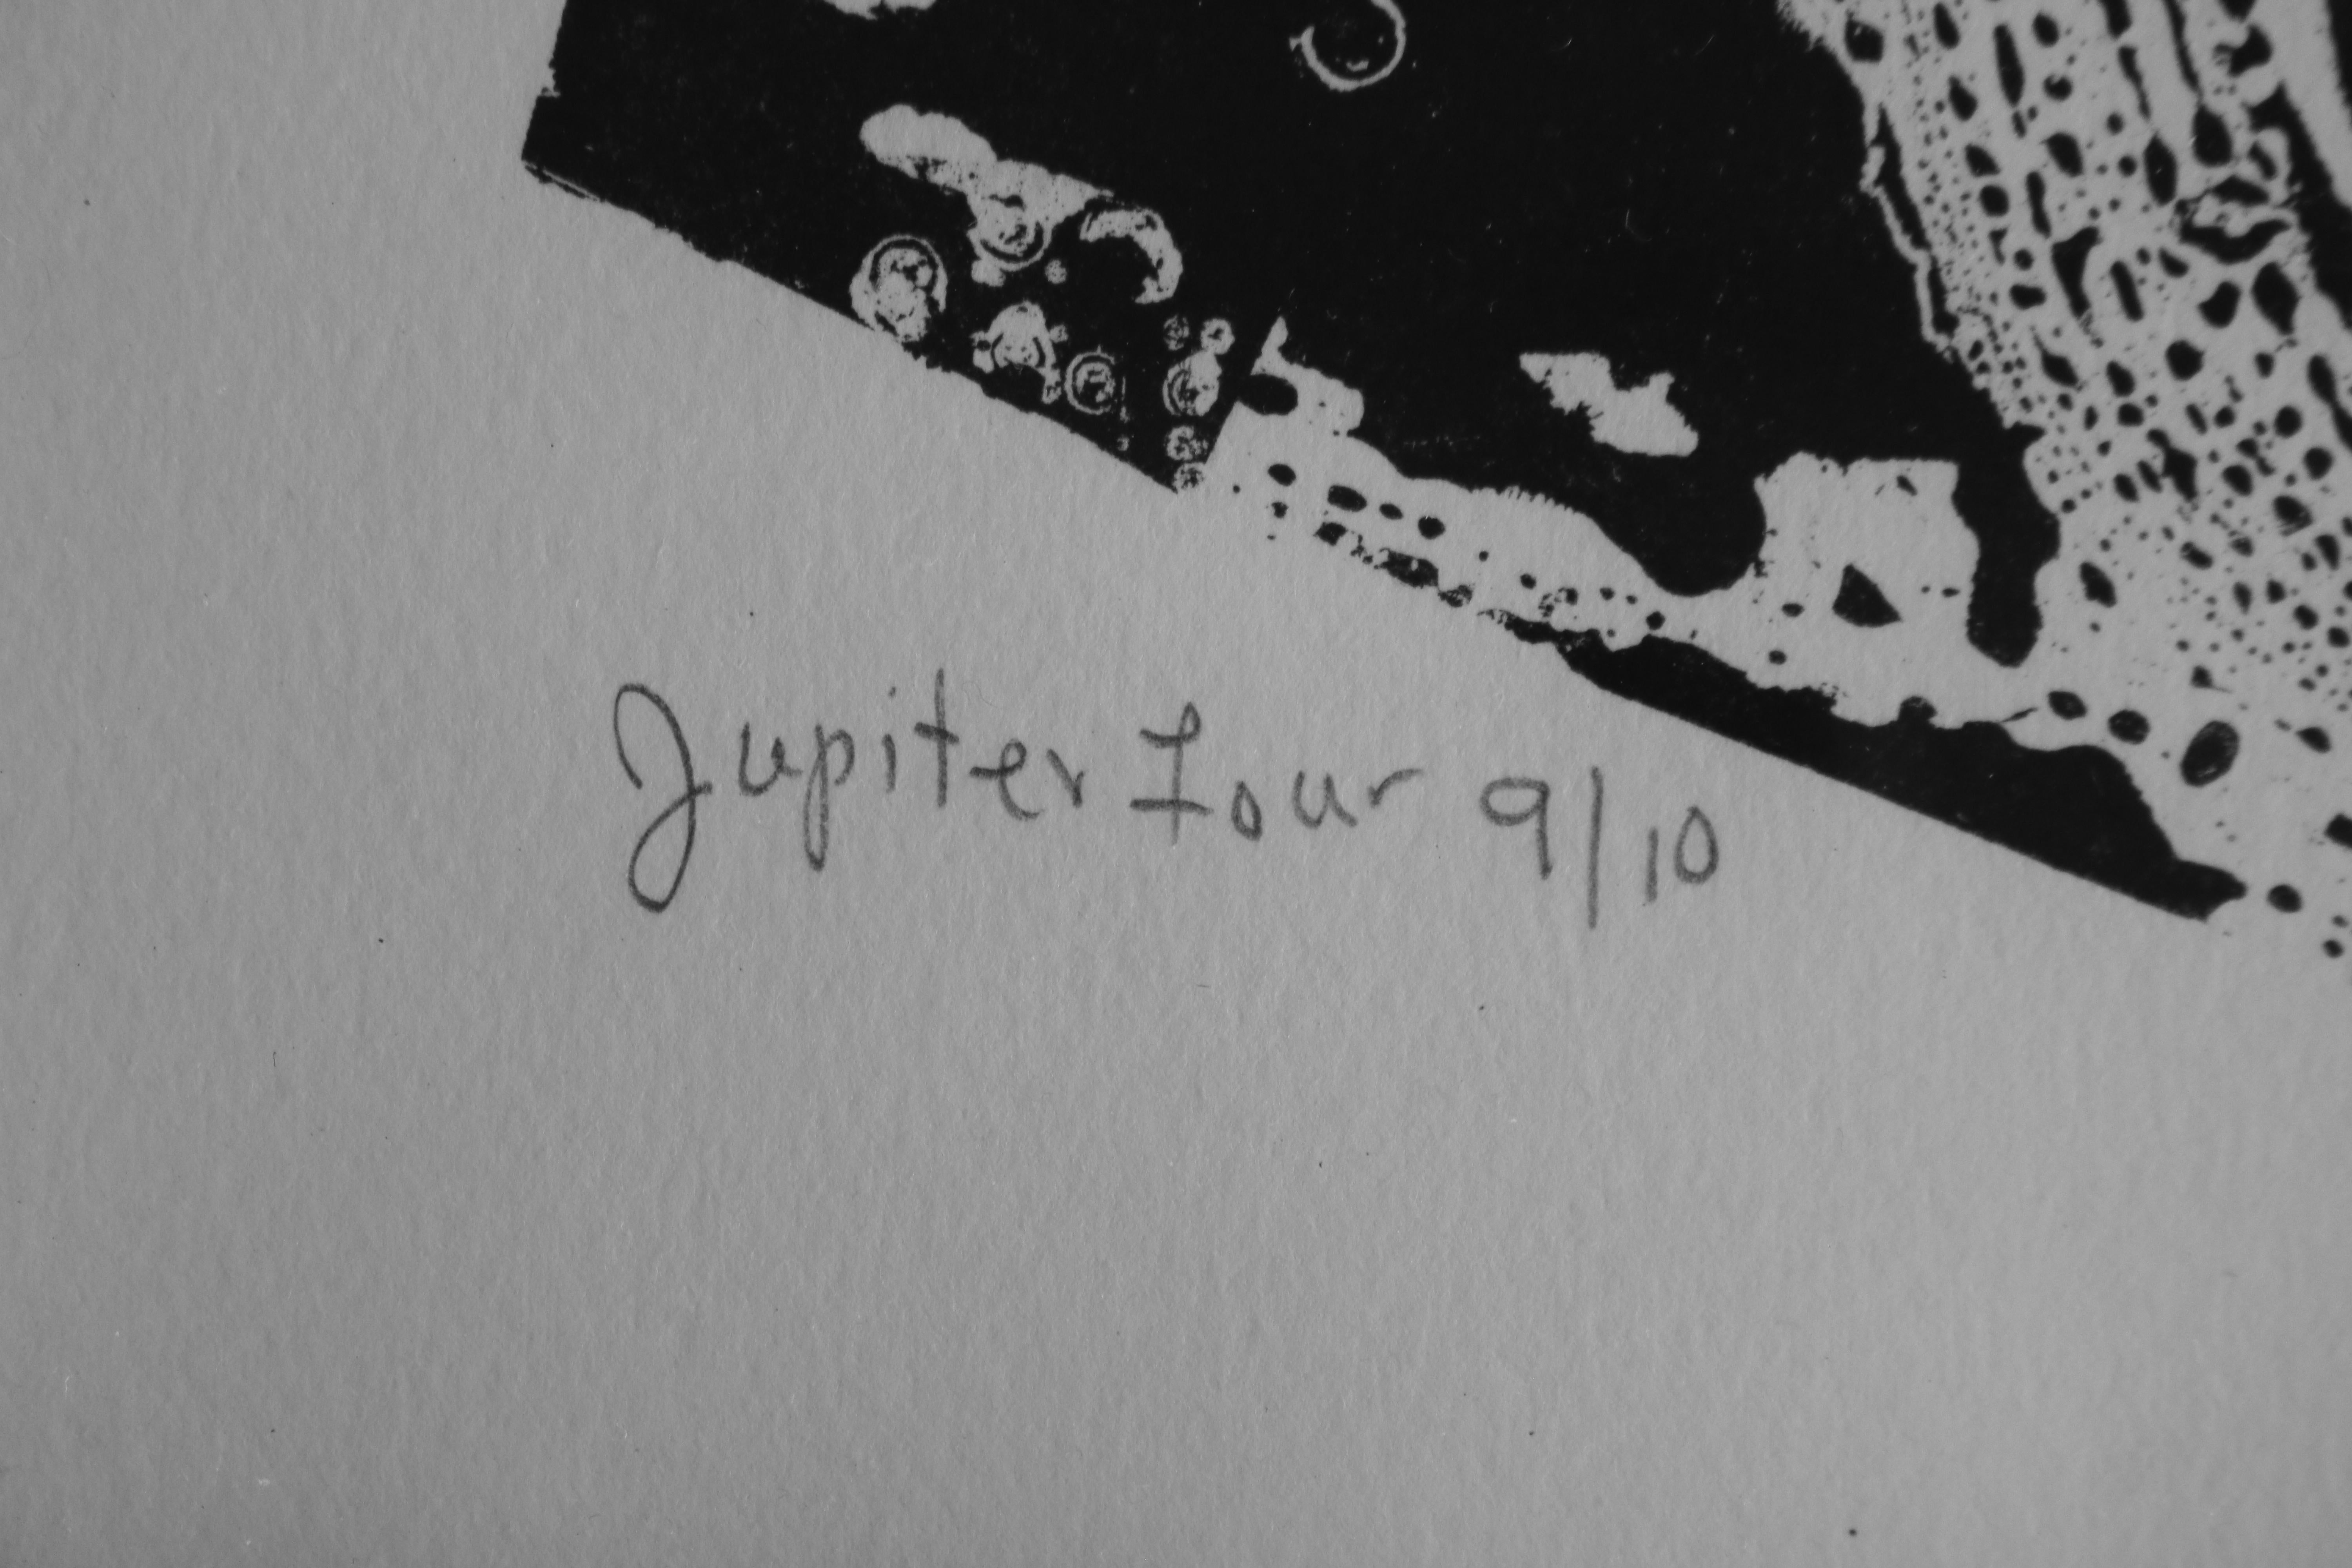 Jupiter Four 9/10